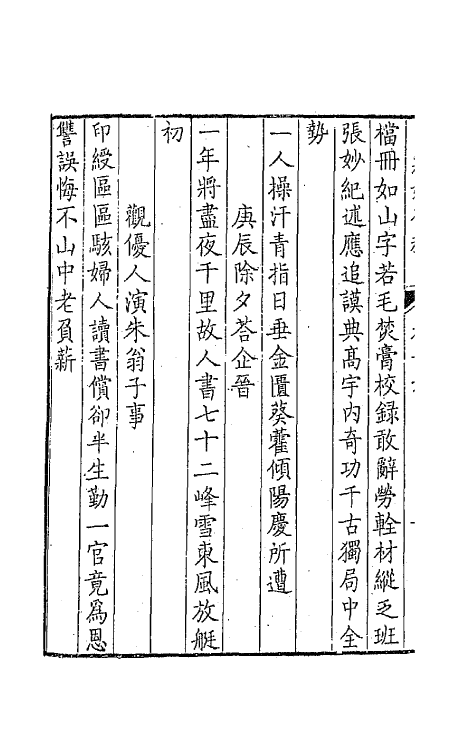 檔冊如山字若毛焚膏校録敢辭勞輇材縱乏班
張妙紀述應追謨典高宇内奇功千古獨局中全
勢
一人操汗青指日垂金匱葵藿傾陽慶所遭
庚辰除夕荅企晉
一年將盡夜千里故人書七十二峰雪東風放艇
初
觀優人演朱翁子事
印綬區區駭婦人讀書償卻半生勤一官竟爲恩
讐誤悔不山中老負薪